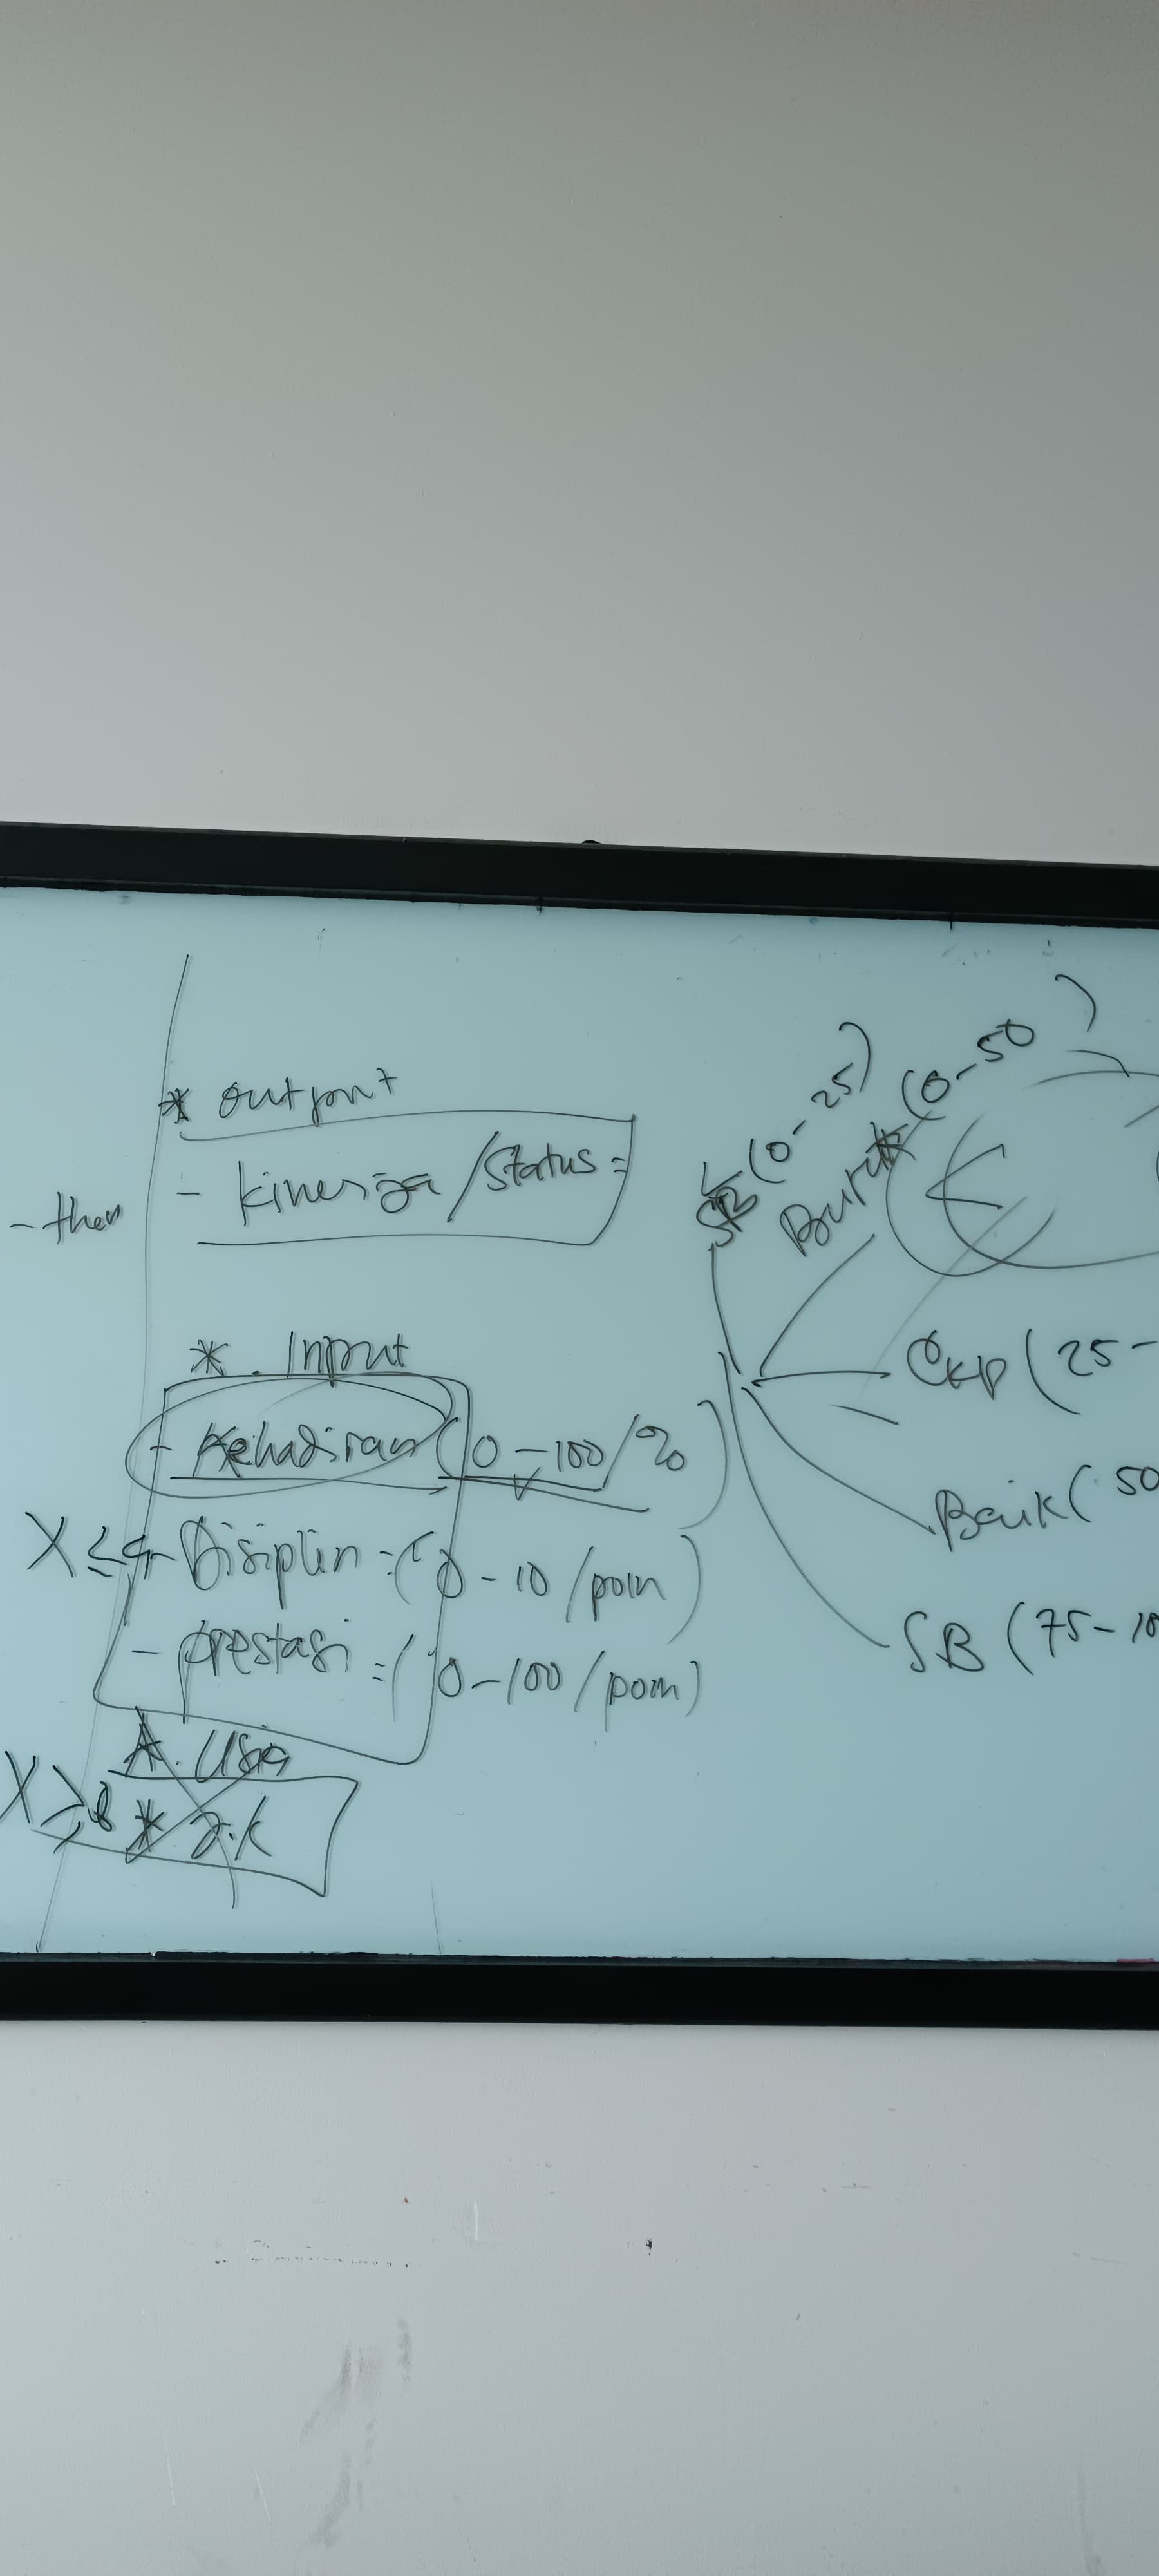 * output
- kinerja / Status =
- then
* . Input
- Kehadiran (0-100/%)
- Disiplin = (0-10/poin)
- prestasi = (0-100/poin)
X ≤ 4
A. Usia
* J.K
X ≥ 8
(0-25)
Buruk (0-50
Ckp (25-
Baik (50
SB (75-10